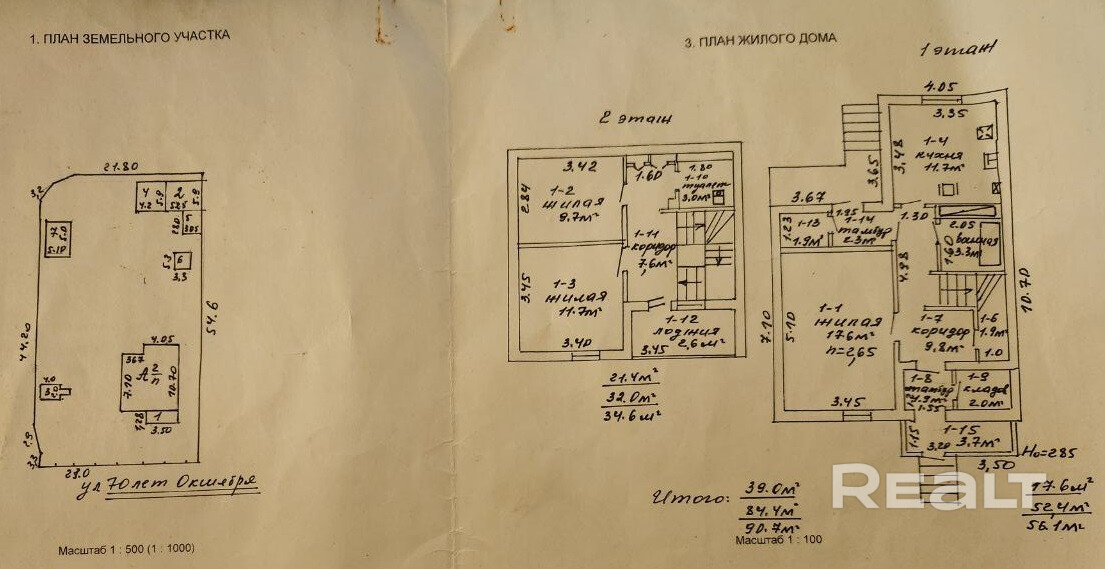 1. ПЛАН ЗЕМЕЛЬНОГО УЧАСТКА
21.80
3,2
4
4.2
5.9
2
5.25
5.9
5
2.80
3.05
7
5.0
5.10
5.3
6
3,3
54.6
44.20
4.05
3.67
А 2/п
7.10
10.70
4.0
3.0
1,28
1
3.50
2.9
3.3
21.0
ул 70 лет Октября
Масштаб 1 : 500 (1 : 1000)
3. ПЛАН ЖИЛОГО ДОМА
2 этаж
3.42
2.84
1-2
жилая
9.7м²
1.60
1.80
1-10
туалет
3.0м²
1-11
коридор
7,6м²
3.45
1-3
жилая
11.7м²
3.40
1-12
лоджия
2,6м²
3.45
21.4м²
32.0м²
34.6м²
1 этаж
4.05
3,35
3,48
3,65
1-4
кухня
11.7м²
3.67
1.23
1-13
1.9м²
1.95
1-14
тамбур
2.3м²
1.30
2.05
ванная
3.3м²
1.60
4.98
10.70
7.10
5.10
1-1
жилая
17.6м²
h=2,65
3.45
1-7
коридор
9,8м²
1-6
1.9м²
1.0
1-8
тамбур
1.55
1-9
кладов
2.0м²
1.15
1-15
3.20
3,7м²
Hо=285
3,50
Итого:
39.0м²
84.4м²
90.7м²
17.6м²
52,4м²
56,1м²
REALT
Масштаб 1 : 100